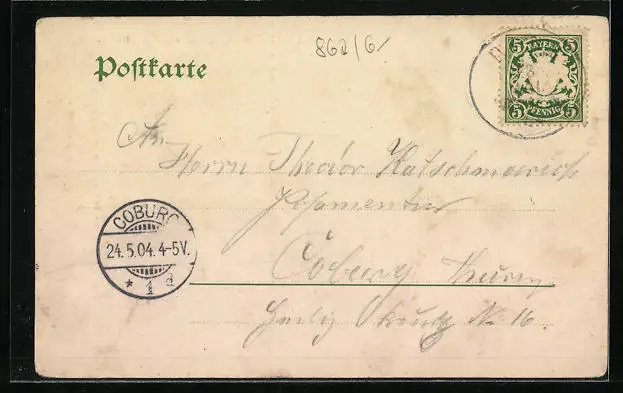 862/6
Postkarte
5 BAYERN 5
5 PFENNIG 5
An
Herrn Theodor
Posamentier
COBURG
24.5.04. 4-5V.
* 1 d
Coburg
Heilig Kreuz No 16.